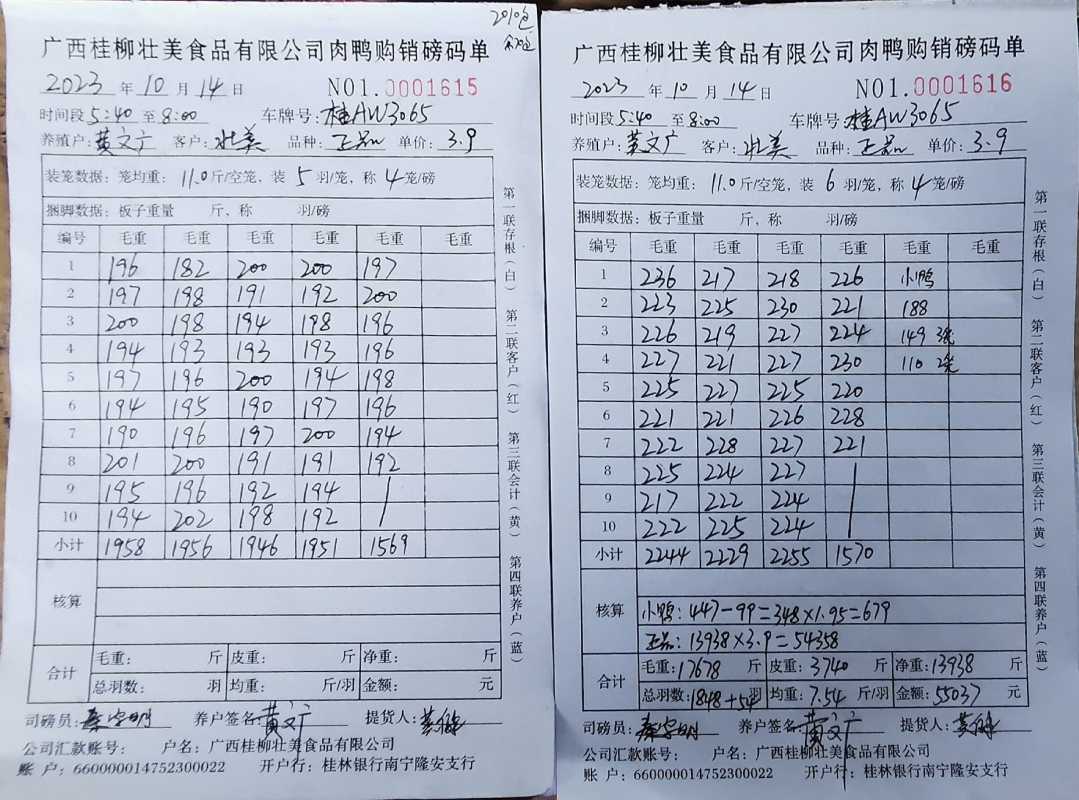 2010包
余2包
广西桂柳壮美食品有限公司肉鸭购销磅码单
2023 年 10 月 14 日 NO1.0001615
时间段 5:40 至 8:00 车牌号: 桂AW3065
养殖户: 黄文广 客户: 壮美 品种: 正品 单价: 3.9
装笼数据: 笼均重: 11.0 斤/空笼、装 5 羽/笼、称 4 笼/磅
捆脚数据: 板子重量 斤、称 羽/磅
编号 毛重 毛重 毛重 毛重 毛重 毛重
1 196 182 200 200 197
2 197 198 191 192 200
3 200 198 194 198 196
4 194 193 193 193 196
5 197 196 200 194 198
6 194 195 190 197 196
7 190 196 197 200 194
8 201 200 191 191 192
9 195 196 192 194 /
10 194 202 198 192 /
小计 1958 1956 1946 1951 1569
核算
合计
毛重: 斤 皮重: 斤 净重: 斤
总羽数: 羽 均重: 斤/羽 金额: 元
司磅员: 养户签名: 黄文广 提货人:
公司汇款账号: 户名: 广西桂柳壮美食品有限公司
账 户: 660000014752300022 开户行: 桂林银行南宁隆安支行
第一联存根(白) 第二联客户(红) 第三联会计(黄) 第四联养户(蓝)
广西桂柳壮美食品有限公司肉鸭购销磅码单
2023 年 10 月 14 日 NO1.0001616
时间段 5:40 至 8:00 车牌号: 桂AW3065
养殖户: 黄文广 客户: 壮美 品种: 正品 单价: 3.9
装笼数据: 笼均重: 11.0 斤/空笼、装 6 羽/笼、称 4 笼/磅
捆脚数据: 板子重量 斤、称 羽/磅
编号 毛重 毛重 毛重 毛重 毛重 毛重
1 236 217 218 226 小鸭
2 223 225 230 221 188
3 226 219 227 224 149 3笼
4 227 221 227 230 110 2笼
5 225 227 225 220
6 221 221 226 228
7 222 228 227 221
8 225 224 227 /
9 217 222 224 /
10 222 225 224 /
小计 2244 2229 2255 1570
核算
小鸭: 447-99=348×1.95=679
正品: 13938×3.9=54358
合计
毛重: 17678 斤 皮重: 3740 斤 净重: 13938 斤
总羽数: 1848+54 羽 均重: 7.54 斤/羽 金额: 55037 元
司磅员: 养户签名: 黄文广 提货人:
公司汇款账号: 户名: 广西桂柳壮美食品有限公司
账 户: 660000014752300022 开户行: 桂林银行南宁隆安支行
第一联存根(白) 第二联客户(红) 第三联会计(黄) 第四联养户(蓝)